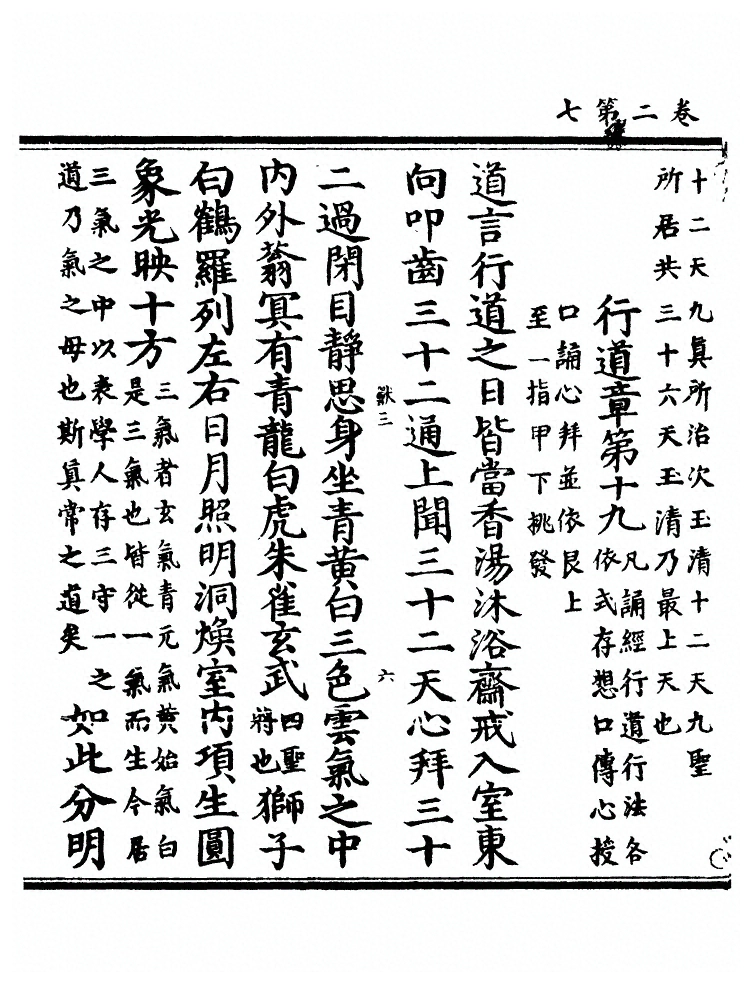 卷二第七
十二天九真所治次玉清十二天九聖
所居共三十六天玉清乃最上天也
行道章第十九
凡誦經行道行法各
依式存想口傳心授
口誦心拜並依艮上
至一指甲下挑發
道言行道之日皆當香湯沐浴齋戒入室東
向叩齒三十二通上聞三十二天心拜三十
三
六
二過閉目靜思身坐青黃白三色雲氣之中
內外蓊冥有青龍白虎朱雀玄武
四聖
將也
獅子
白鶴羅列左右日月照明洞煥室內項生圓
象光映十方
三氣者玄氣青元氣黃始氣白
是三氣也皆從一氣而生今居
三氣之中以表學人存三守一之
道乃氣之母也斯真常之道矣
如此分明